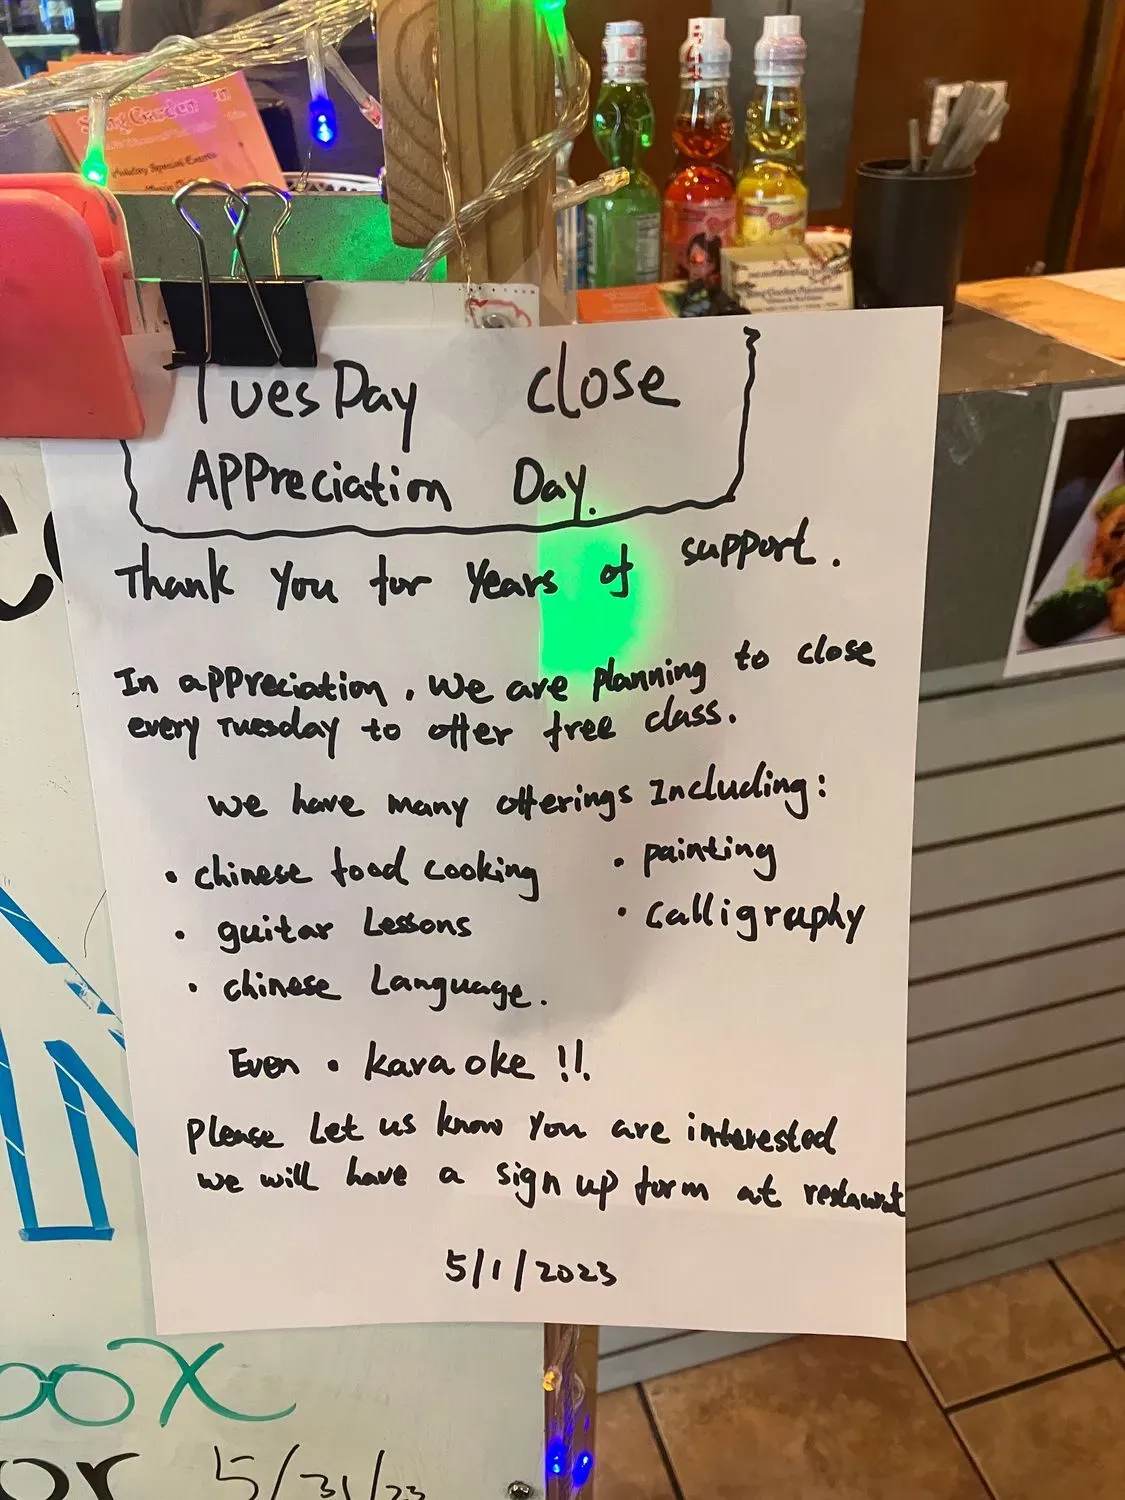 Garden
Holiday Special Events
TuesDay close
Appreciation Day.
Thank You for Years of support.
In appreciation, we are planning to close
every Tuesday to offer free class.
we have many offerings Including:
• chinese food cooking
• guitar Lessons
• chinese Language.
• painting
• calligraphy
Even • karaoke !!
please let us know you are interested
we will have a sign up form at restaurat
5/1/2023
oox
or 5/31/23